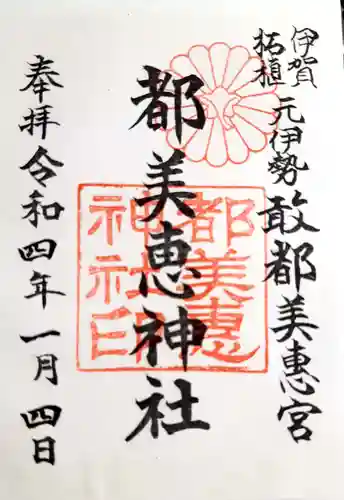 伊賀
柘植
元伊勢敢都美恵宮
都美恵神社
都美恵
神社印
奉拝令和四年一月四日